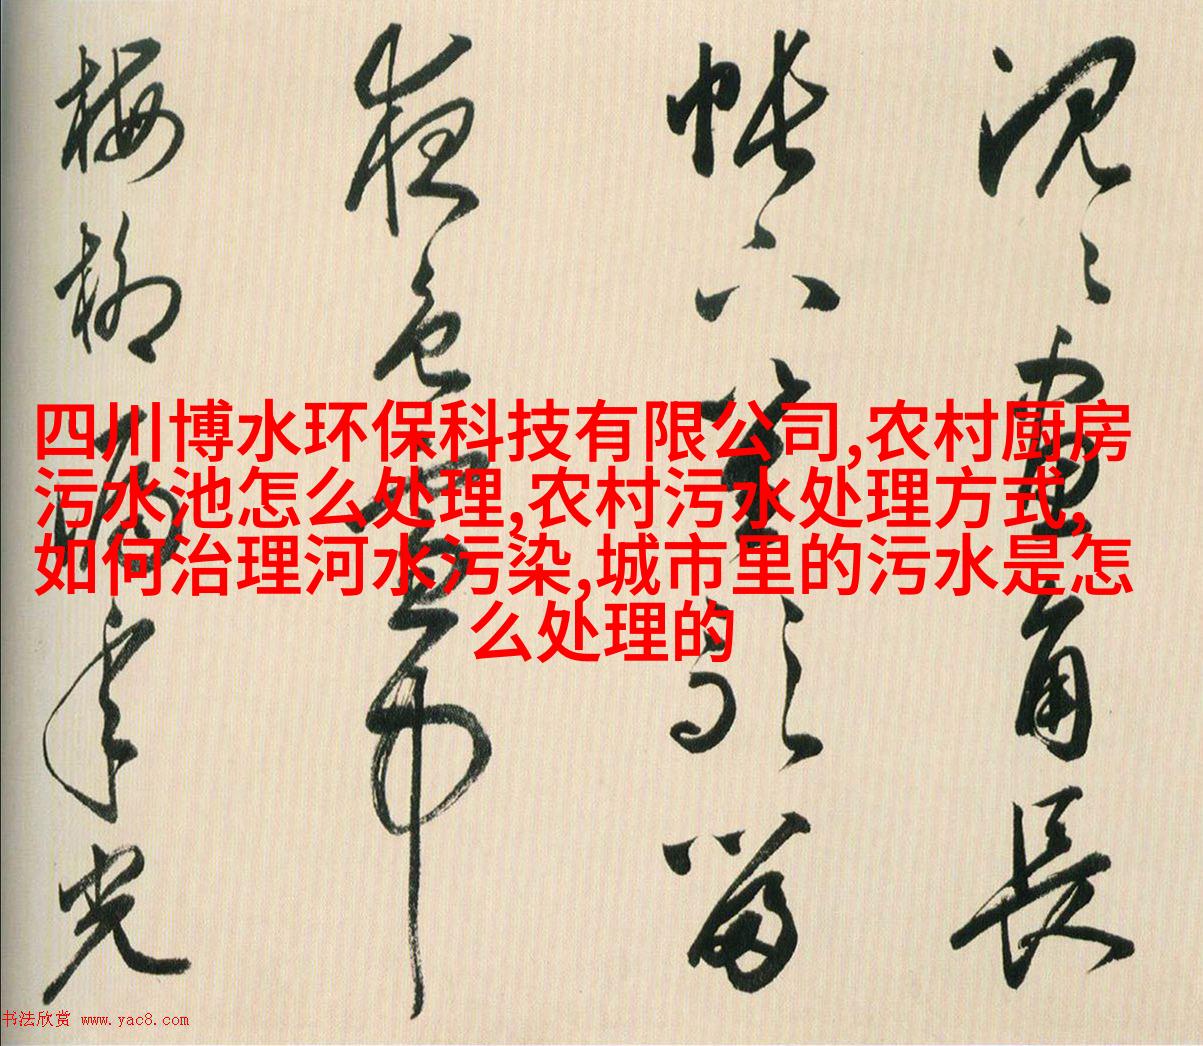 四川博水环保科技有限公司,农村厨房
污水池怎么处理,农村污水处理方式,
如何治理河水污染,城市里的污水是怎
么处理的
畫角長
夜色
梅柳年光
书法欣赏 www.yac8.com